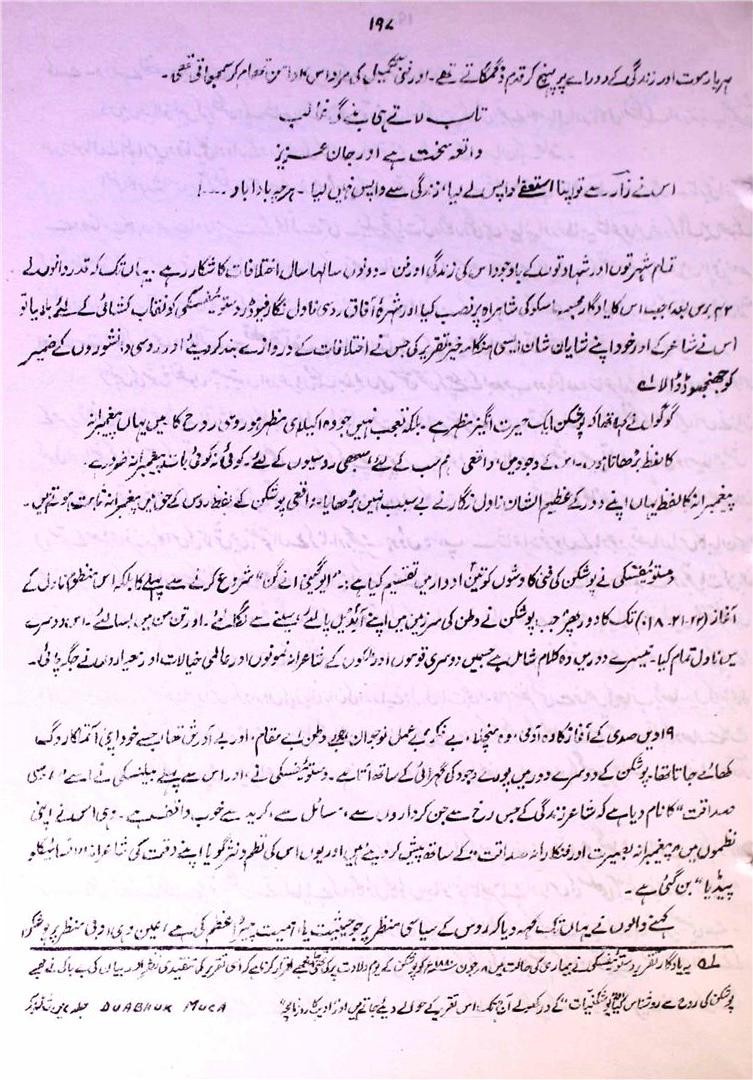 ۱۹۷
ہر بار موت اور زندگی کے دوراہے پر پہنچ کر قدم ڈگمگاتے تھے۔ اور فنی تکمیل کی مراد اس کا دامن تھام کر سمجھاتی تھی۔
تاب لاتے ہی بنے گی غالب
واقعہ سخت ہے اور جان عزیز
اس نے زار سے تو اپنا استعفےٰ واپس لے لیا، زندگی سے واپس نہیں لیا۔ ہرچہ بادا باد ....!
تمام شہرتوں اور شہادتوں کے باوجود اس کی زندگی اور فن۔ دونوں سالہا سال اختلافات کا شکار رہے۔ یہاں تک کہ قدردانوں نے
۴۲ برس بعد جب اس کا یادگار مجسمہ ماسکو کی شاہراہ پر نصب کیا اور شہرۂ آفاق روسی ناول نگار فیوڈر دستوئیفسکی کو نقاب کشائی کے لئے بلایا تو
اس نے شاعر کے اور خود اپنے شایان شان ایسی ہنگامہ خیز تقریر کی جس نے اختلافات کے دروازے بند کر دیئے اور روسی دانشوروں کے ضمیر
کو جھنجھوڑ ڈالا لہ
گوگول نے کہا تھا کہ پوشکن ایک حیرت انگیز مظہر ہے۔ بلکہ تعجب نہیں جو وہ اکیلا ہی مظہر ہو روسی روح کا میں یہاں پیغمبرانہ
کا لفظ بڑھاتا ہوں۔ اس کے وجود میں، واقعی ہم سب کے لئے، سبھی روسیوں کے لئے۔ کوئی نہ کوئی بات پیغمبرانہ ضرور ہے۔
پیغمبرانہ کا لفظ یہاں اپنے دور کے عظیم الشان ناول نگار نے بے سبب نہیں بڑھایا۔ واقعی پوشکن کے لفظ روس کے حق میں پیغمبرانہ ثابت ہوتے ہیں۔
دستوئیفسکی نے پوشکن کی فنی کاوشوں کو تین ادوار میں تقسیم کیا ہے :۔ "ایوگینی انے گن" شروع کرنے سے پہلے کا بلکہ اس منظوم ناول کے
آغاز تک کا دور پھر جب پوشکن نے وطن کی سرزمین میں اپنے آئیڈیل پا لئے، سینے سے لگا لئے۔ اور تن من میں بسا لئے۔ اس دوسرے
میں ناول تمام کیا۔ تیسرے دور میں وہ کلام شامل ہے جس میں دوسری قوموں اور ملکوں کے شاعرانہ نمونوں اور عالمی خیالات اور نے جگہ پائی۔
۱۹ ویں صدی کے آغاز کا وہ آدمی، وہ منچلا، بے فکر، بے عمل نوجوان جو اپنے وطن بے مقام، اور بے آدرش تھا، جسے خود اپنی آتما کا روگ
کھائے جاتا تھا۔ پوشکن کے دوسرے دور میں پورے وجود کی گہرائی کے ساتھ آتا ہے۔ دستوئیفسکی نے، اور اس سے پہلے بیلنسکی نے اسے
صداقت" کا نام دیا ہے کہ شاعر زندگی کے جس رخ سے جن کرداروں سے، مسائل سے، کرید سے خوب واقف ہے۔ وہی اس نے اپنی
نظموں میں "پیغمبرانہ بصیرت اور فنکارانہ صداقت" کے ساتھ پیش کر دیئے ہیں اور یوں اس کی نظم و نثر گویا اپنے وقت کی شاعرانہ انسائیکلو
پیڈیا" بن گئی ہے۔
کہنے والوں نے یہاں تک کہہ دیا کہ روس کے سیاسی منظر پر جو حیثیت یا اہمیت پیٹر اعظم کی ہے بعین وہی ادبی منظر پر پوشکن
لہ یہ یادگار تقریر دستوئیفسکی نے بیماری کی حالت میں ۸ جون ۱۸۸۰ء کو پوشکن کے یوم ولادت پر کی تھی مجھے اقرار کرنا ہے کہ اس تقریر کی تنقیدی نظر اور بیاں کی بے باکی نے مجھے
پوشکن کی روح سے روشناس کیا "پوشکنیات" کے در کھولے آج تک اس تقریر کے حوالے دیئے جاتے ہیں